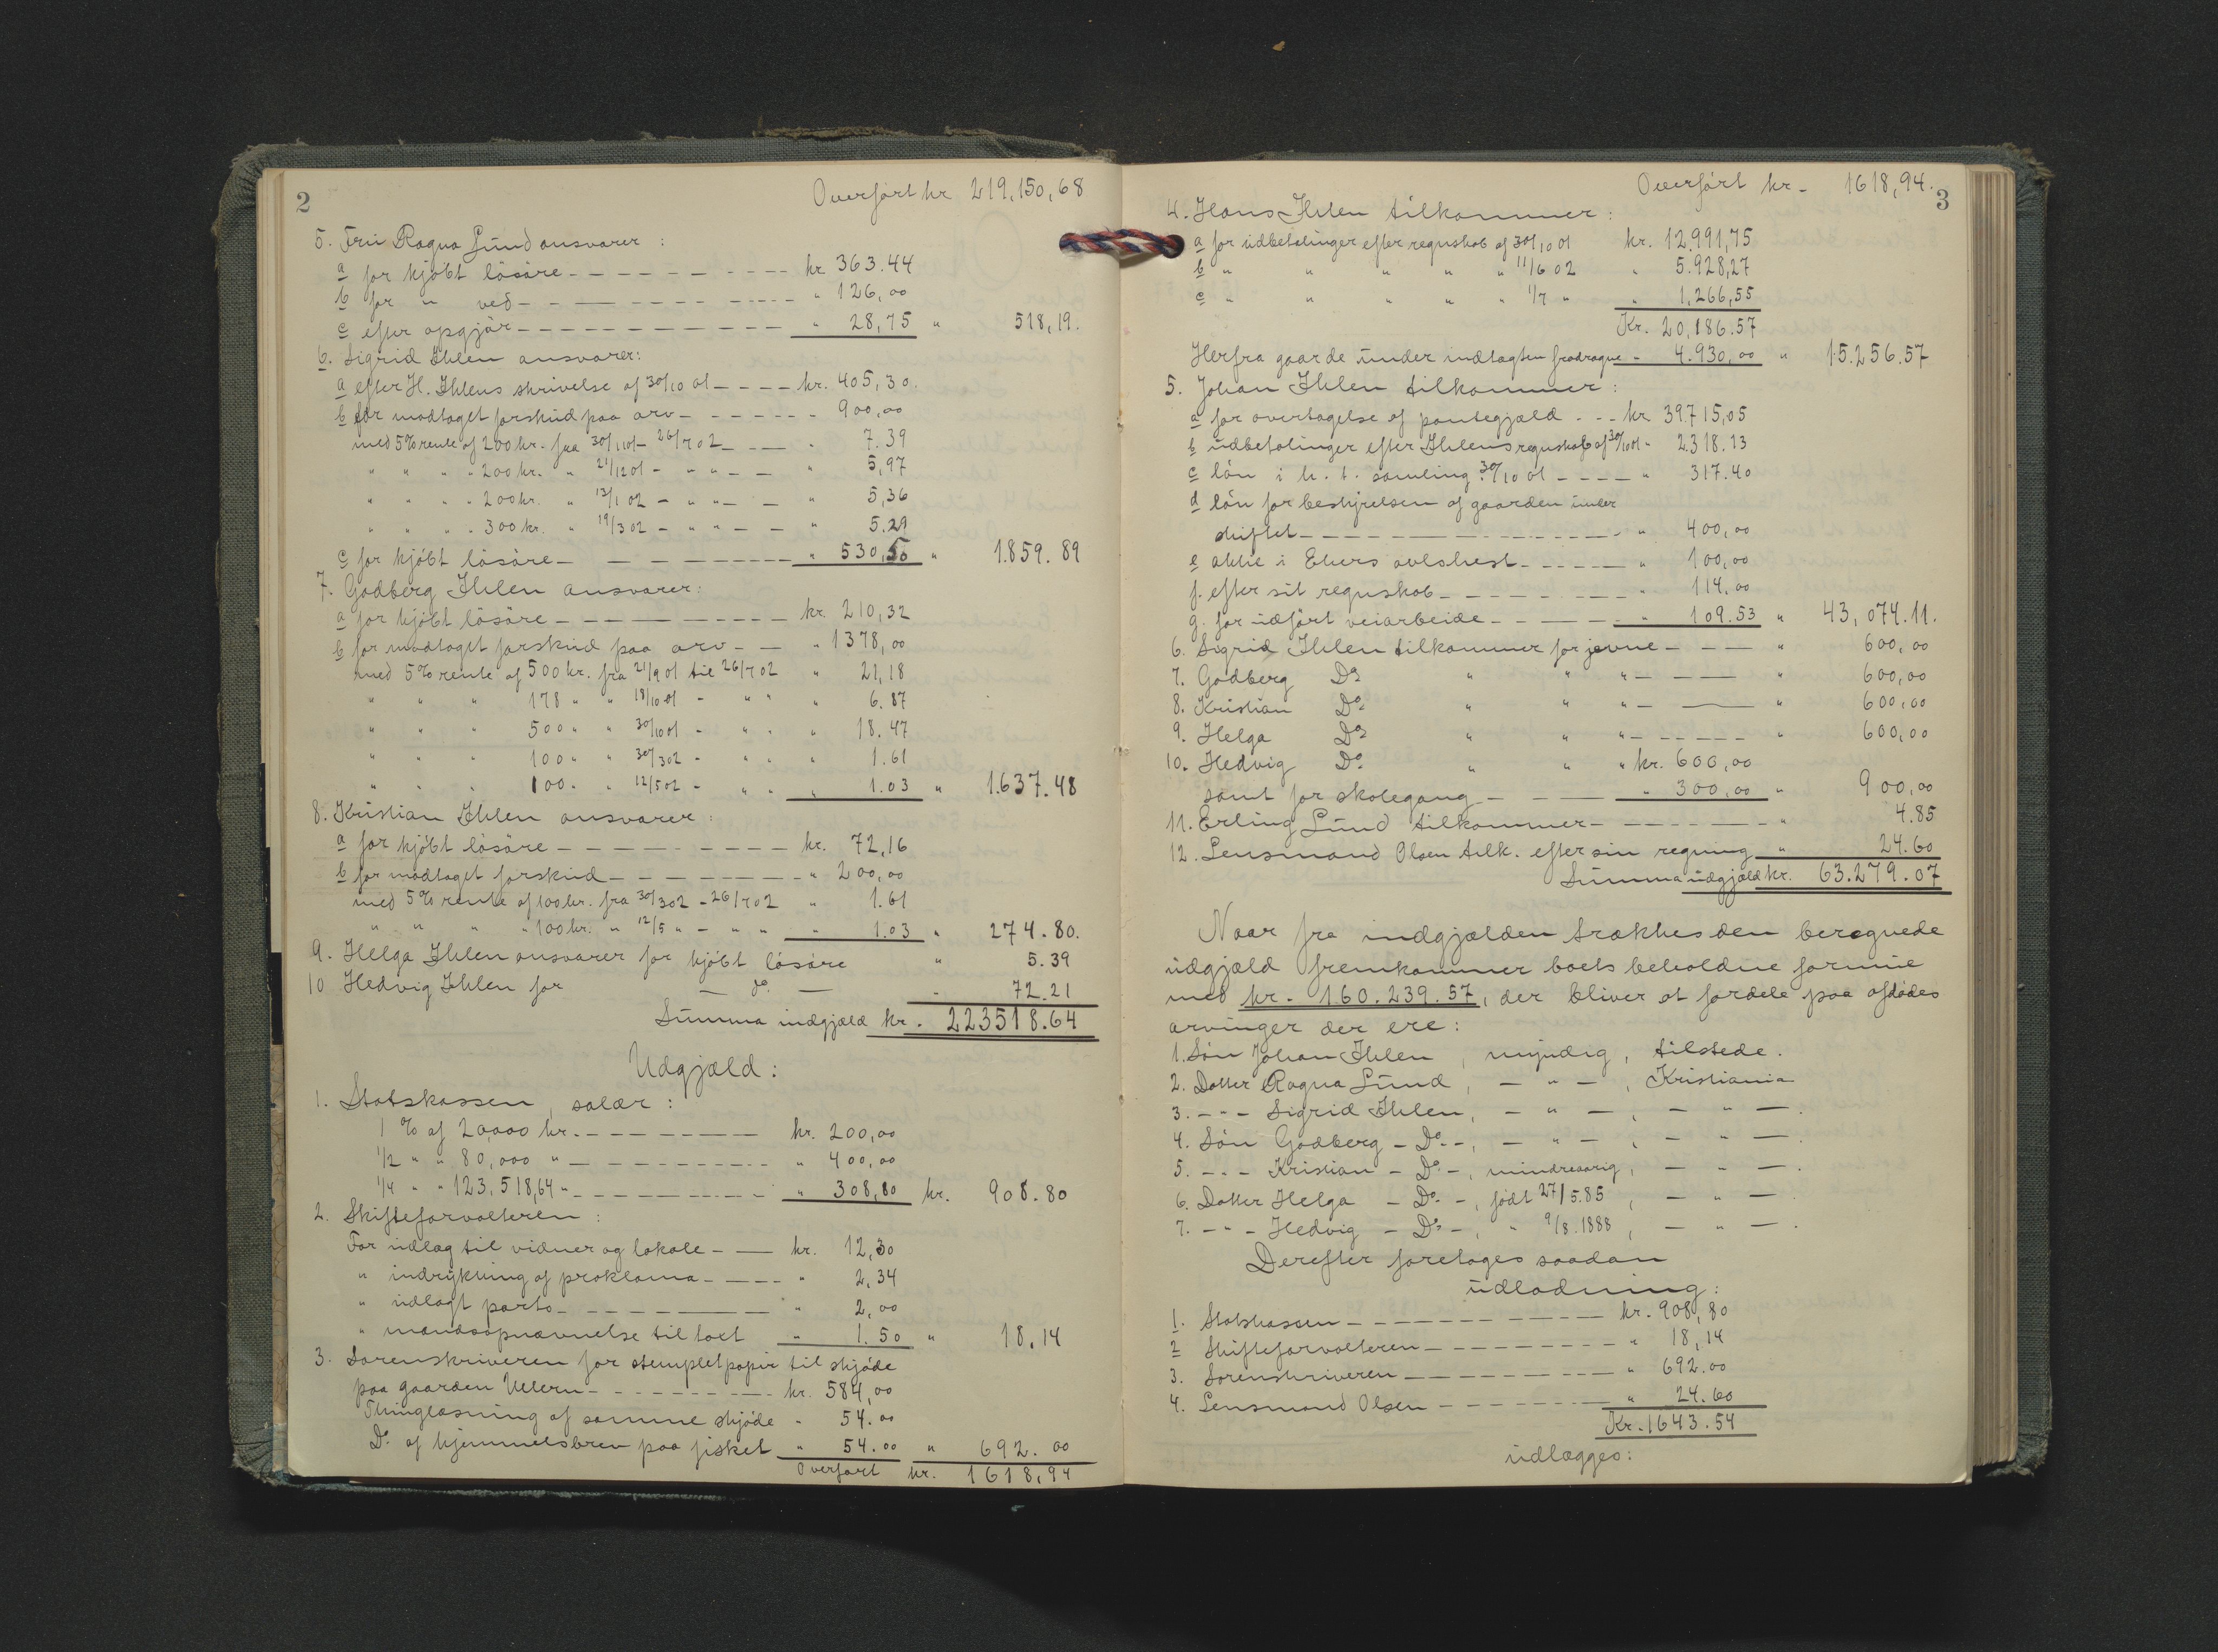 2
Overført kr 219,150,68
5. Fru Ragna Lund ansvarer :
a for kjøbt løsøre - - - - - - - - - kr 363.44
b for " ved - - - - - - - - - " 126,00
c efter opgjør - - - - - - - - - " 28,75 " 518,19.
6. Sigrid Ihlen ansvarer:
a efter H. Ihlens skrivelse af 30/10 01 - - - - kr. 405,30.
b for modtaget forskud paa arv - - - - - - - 900,00
med 5% rente af 200 kr. fra 30/1101 - 26/7 02 - - - " 7.39
" " " " 200 kr. " 21/1201 - " " - - " 5,97
" " " " 200 kr. " 13/1 02 - " " - - " 5,36
" " " " 300 kr. " 19/3 02 - " " - - " 5.29
c for kjøbt løsøre - - - - - - - - " 530,50 " 1.859.89
7. Godberg Ihlen ansvarer:
a for kjøbt løsøre - - - - - - - - kr. 210,32
b for modtaget forskud paa arv - - - " 1378,00
med 5% rente af 500 kr. fra 21/9 01 til 26/7 02 " 21,18
" " " 178 " " 18/10 01 - " " " 6.87
" " " 500 " " 30/10 01 - " " " 18.47
" " " 100 " " 30/3 02 - " " " 1.61
" " " 100 - " 12/5 02 - " " " 1.03 " 1.637.48
8. Kristian Ihlen ansvarer :
a for kjøbt løsøre - - - - - - - - kr. 72,16
b for modtaget forskud - - - - - - - " 200,00
med 5% rente af 100 kr. fra 30/3 02 - 26/7 02 " 1.61
" " " " 100 kr. " 12/5 " - " " " 1.03 " 274.80.
9. Helga Ihlen ansvarer for kjøbt løsøre " 5.39
10 Hedvig Ihlen for — do. — - 72.21
Summa indgjæld kr. 223518.64
Udgjæld :
1. Statskassen, salær :
1 % af 20,000 kr. - - - - - - - kr. 200,00
1/2 " " 80,000 " - - - - - - - " 400,00
1/4 " " 123.518,64 " - - - - - - - " 308,80 kr. 908.80
2. Skifteforvalteren :
For udlæg til vidner og lokale - - - kr. 12,30
" indrykning af proklama - - - - " 2,34
" udlagt porto - - - - - - - - " 2,00
" mandsopnævnelse til taxt " 1.50 " 18,14
3. Sorenskriveren for stempletpapir til skjøde
paa gaarden Ulleren - - - - - - - kr. 584,00
Thinglæsning af samme skjøde - 54.00
Do. af hjemmelsbrev paa fisket " 54.00 " 692.00
Overført kr. 1618,94
Overført kr - 1618,94.
3
4. Hans Ihlen tilkommer :
a for udbetalinger efter regnskab af 30/10 01 kr. 12.991,75
b " " " " " 11/6 02 " 5.928,27
c " " " " " 1/7 " " 1,266,55
Kr. 20,186.57
Herfra gaar de under indtægten fradragne - 4.930,00 " 15.256.57
5. Johan Ihlen tilkommer :
a for overtagelse af pantegjæld - - - kr 39.715,05
b udbetalinger efter Ihlens regnskab af 30/10 01 " 2.318.13
c løn i h. t. samling 30/10 01 - - - - " 317.40
d løn for bestyrelsen af gaarden under
skiftet - - - - - - - - - - - " 400,00
e aktie i Ekers avlshest - - - - - - " 100,00
f. efter sit regnskab - - - - - - - - " 114.00
g. for udført veiarbeide - - - - - - " 109.53 " 43,074.11.
6. Sigrid Ihlen tilkommer for jevne - - - " 600,00
7. Godberg Do " " " - - - " 600,00
8. Kristian Do. " " " - - " 600,00
9. Helga Do " " " - - - - - " 600,00
10. Hedvig Do. " " " kr. 600,00
samt for skolegang - - - " 300,00 " 900,00
11. Erling Lund tilkommer - - - - - - - - " 4.85
12. Lensmand Olsen tilk. efter sin regning " 24.60
Summa udgjæld kr. 63.279.07
Naar fra indgjælden trækkes den beregnede
udgjæld fremkommer boets beholdne formue
med kr. 160.239.57, der bliver at fordele paa afdødes
arvinger der ere :
1. Søn Johan Ihlen, myndig, tilstede.
2. Datter Ragna Lund, - " -, Kristiania
3. - - - Sigrid Ihlen, - " -, - " -.
4. Søn Godberg - Do. -, - " -, - " -.
5. - - - Kristian - Do. -, mindreaarig, - " -.
6. Datter Helga - Do. -, født 27/5.85, - " -.
7. - " - Hedvig - Do -, " 9/8.1888, - " -.
Derefter foretages saadan
udlodning :
1. Statskassen - - - - - - - - - - kr. 908,80
2 Skifteforvalteren - - - - - - - - " 18,14
3. Sorenskriveren - - - - - - - - " 692.00
4. Lensmand Olsen - - - - - - - - " 24.60
Kr. 1643.54
udlægges :